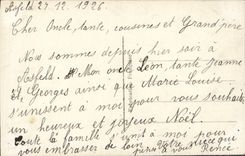 Asfeld 27.12.1926.
Cher Oncle, tante, cousines et Grand père
Nous sommes depuis hier soir à
Asfeld. Mon oncle Léon, tante Jeanne
et Georges ainsi que Marie Louise
s'unissent à moi pour vous souhaiter
un heureux et joyeux Noël.
Toute la famille s'unit à moi pour
vous embrasser de loin. Votre nièce qui
pense à vous Renée